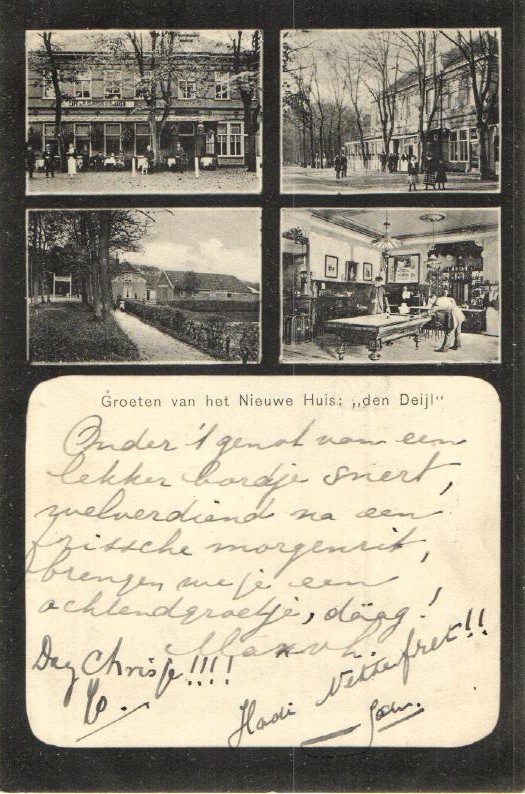 Groeten van het Nieuwe Huis: „den Deijl"
Onder 't genot van een
lekker bordje snert,
welverdiend na een
frissche morgenrit,
brengen we je een
ochtendgroetje, dáág!
Dag Chrisje!!!!